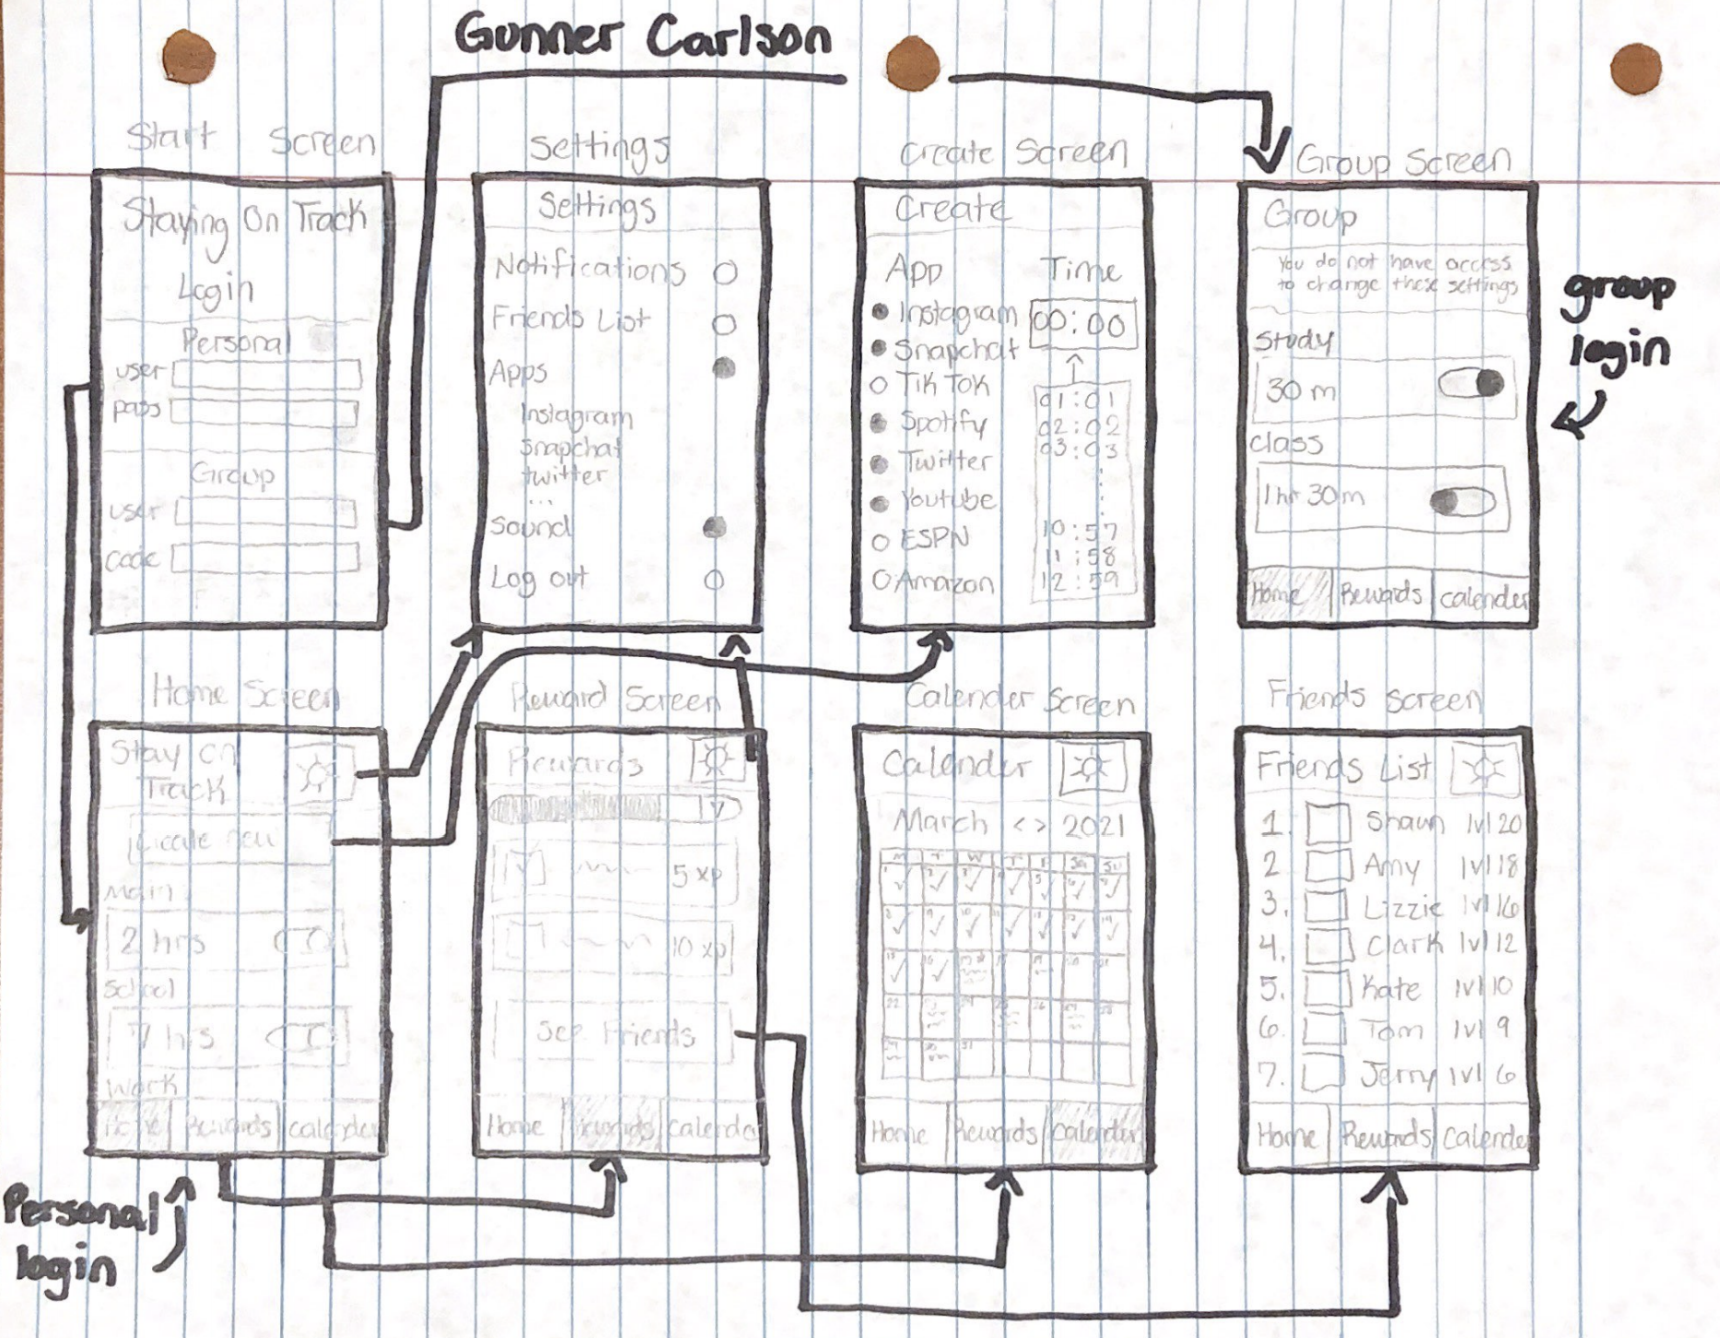 Gunner Carlson
Start Screen
Staying On Track
Login
Personal
user
pass
Group
user
code
Settings
Settings
Notifications
Friends List
Apps
Instagram
Snapchat
twitter
...
Sound
Log out
Create Screen
Create
App Time
Instagram 00:00
Snapchat
Tik Tok 01:01
Spotify 02:02
Twitter 03:03
Youtube
ESPN 10:57
11:58
Amazon 12:59
Group Screen
Group
You do not have access
to change these settings
Study
30 m
class
1 hr 30 m
Home Rewards calender
group
login
Home Screen
Stay on
Track
Create new
Main
2 hrs
School
7 hrs
Work
Home Rewards calender
Personal
login
Reward Screen
Rewards
5 xp
10 xp
See Friends
Home Rewards calender
Calender Screen
Calender
March < > 2021
M T W T F Sa Su
Home Rewards Calender
Friends Screen
Friends List
1. Shawn lvl 20
2 Amy lvl 18
3. Lizzie lvl 16
4. Clark lvl 12
5. Kate lvl 10
6. Tom lvl 9
7. Jerry lvl 6
Home Rewards Calender